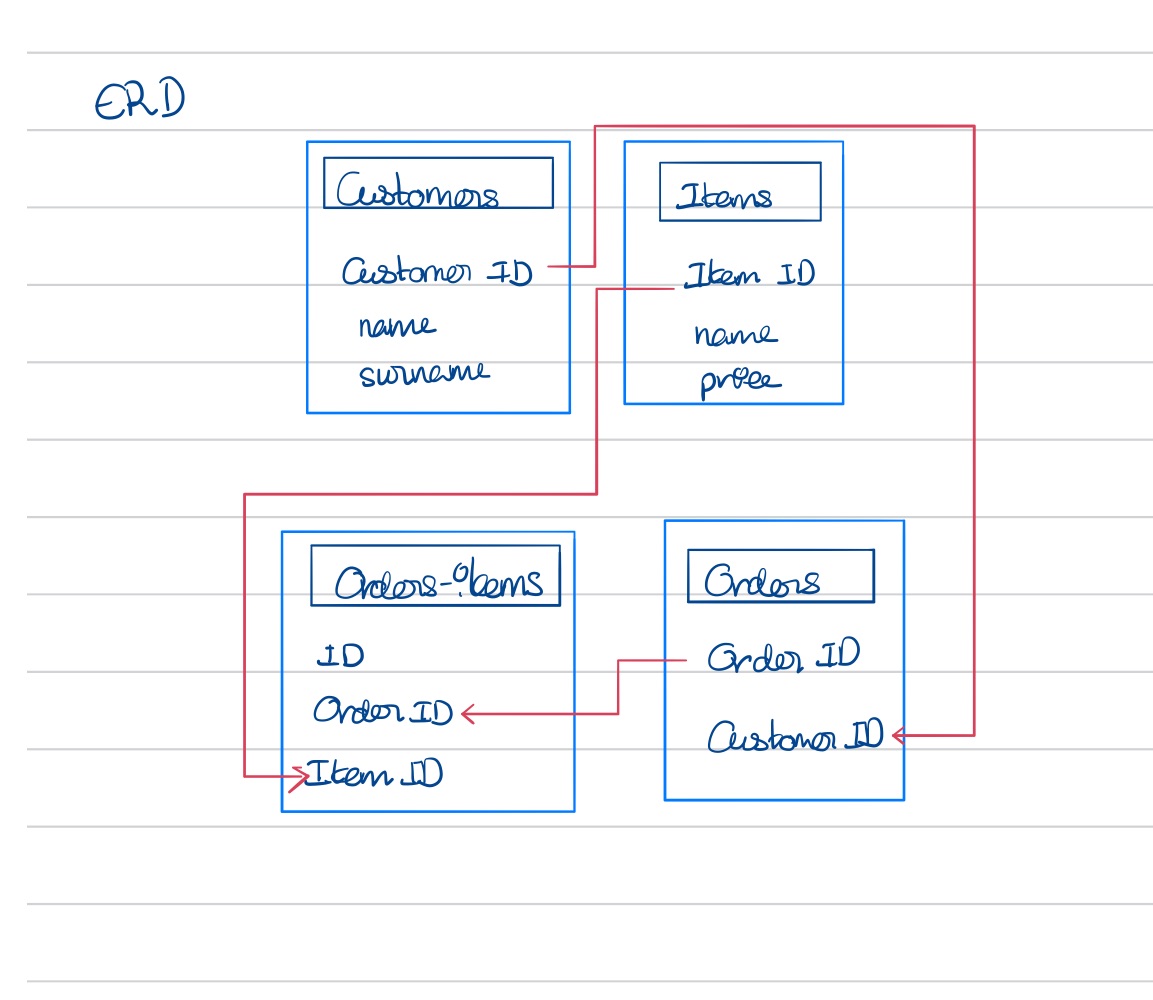 ERD
Customers
Customer ID
name
surname
Items
Item ID
name
price
Orders-Items
ID
Order ID
Item ID
Orders
Order ID
Customer ID